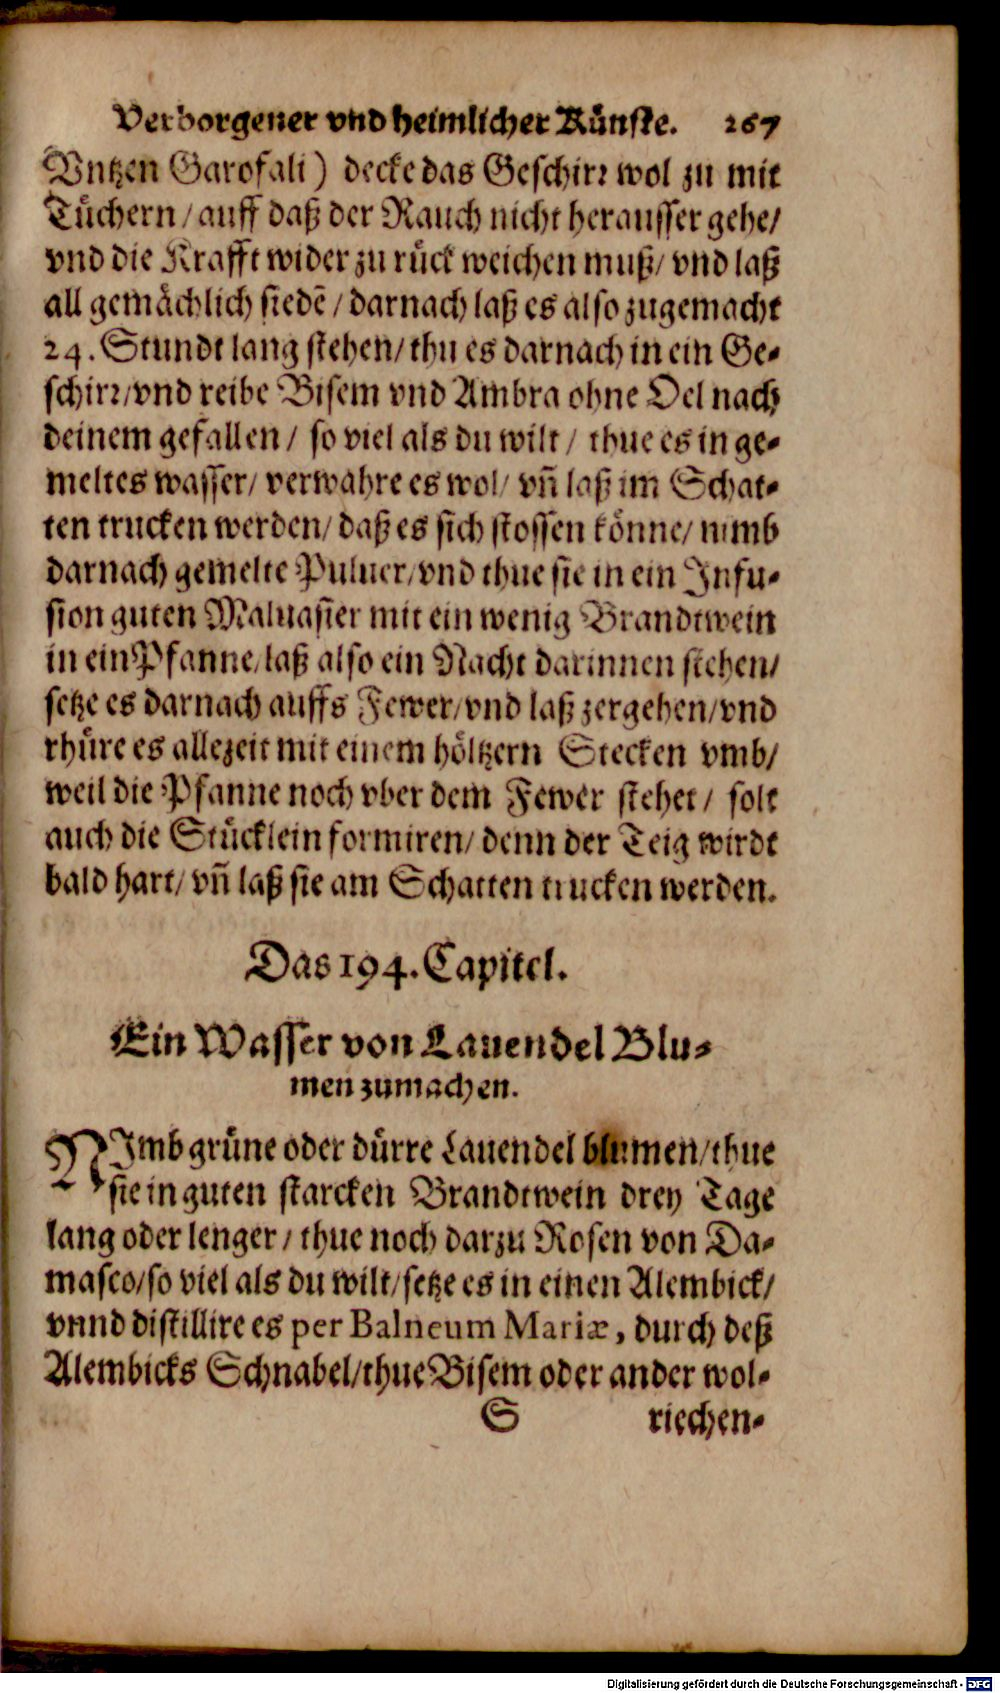 Verborgener vnd heimlicher Künste. 267
Vntzen Garofali) decke das Geschirr wol zu mit
Tüchern/auff daß der Rauch nicht herausser gehe/
vnd die Krafft wider zu rück weichen muß/ vnd laß
all gemächlich siedē/darnach laß es also zugemacht
24. Stundt lang stehen/thu es darnach in ein Ge-
schirr/vnd reibe Bisem vnd Ambra ohne Oel nach
deinem gefallen/ so viel als du wilt/ thue es in ge-
meltes wasser/ verwahre es wol/ vn̄ laß im Schat-
ten trucken werden/daß es sich stossen könne/ nimb
darnach gemelte Puluer/vnd thue sie in ein Infu-
sion guten Maluasier mit ein wenig Brandtwein
in ein Pfanne/laß also ein Nacht darinnen stehen/
setze es darnach auffs Fewer/vnd laß zergehen/vnd
rhüre es allezeit mit einem höltzern Stecken vmb/
weil die Pfanne noch vber dem Fewer stehet/ solt
auch die Stücklein formiren/denn der Teig wirdt
bald hart/vn̄ laß sie am Schatten trucken werden.
Das 194. Capitel.
Ein Wasser von Lauendel Blu-
men zumachen.
NImb grüne oder dürre Lauendel blumen/thue
sie in guten starcken Brandtwein drey Tage
lang oder lenger/thue noch darzu Rosen von Da-
masco/so viel als du wilt/setze es in einen Alembick/
vnnd distillire es per Balneum Mariæ, durch deß
Alembicks Schnabel/thue Bisem oder ander wol-
S riechen-
Digitalisierung gefördert durch die Deutsche Forschungsgemeinschaft - DFG